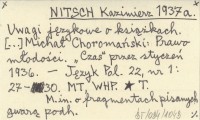 NITSCH Kazimierz 1937a.
Uwagi językowe o książkach.
[..] Michał Choromański: Prawo
młodości. "Czas" przez styczeń
1936. — Język Pol. 22, nr 1:
27-30. MT, WHP. T.
M.in. o fragmentach pisanych
gwarą podh.